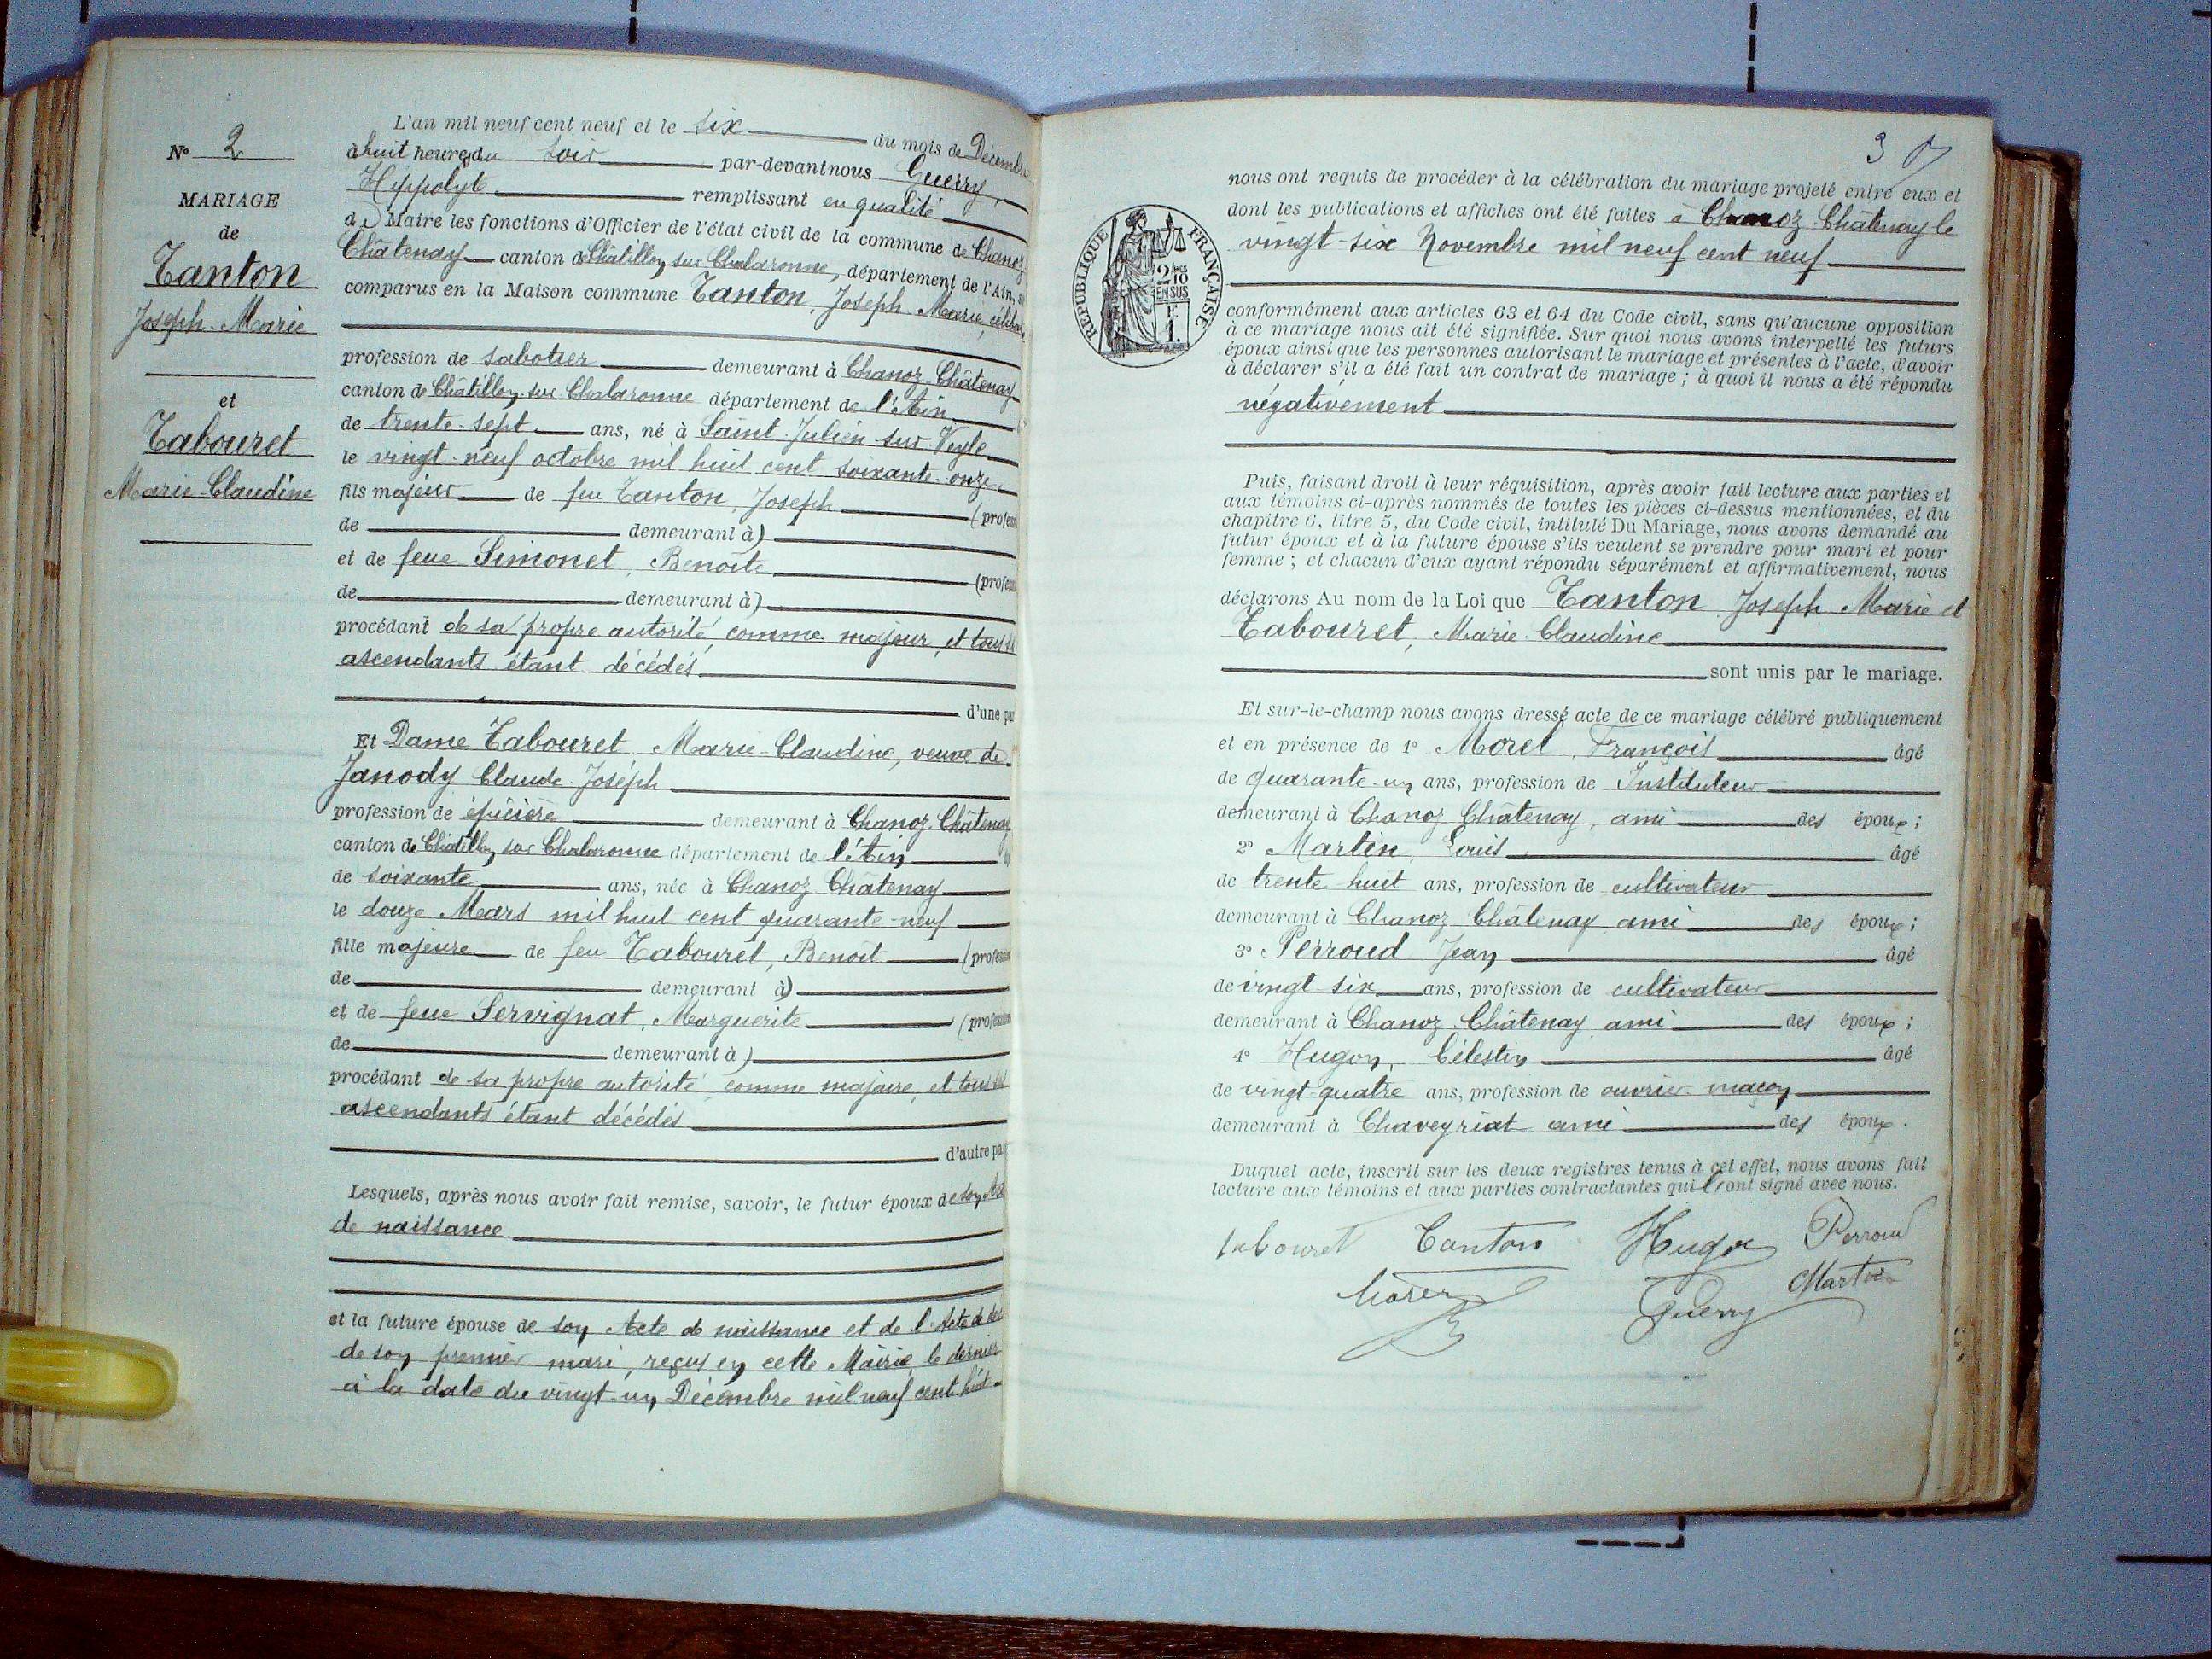 N° 2
MARIAGE
de
Tanton
Joseph-Marie
et
Tabouret
Marie-Claudine
L'an mil neuf cent neuf et le six du mois de Décembre
à huit heures du soir par-devant nous Guerry,
Hippolyte remplissant en qualité
de Maire les fonctions d'Officier de l'état civil de la commune de Chanoz
Châtenay canton de Châtillon sur Chalaronne, département de l'Ain,
comparus en la Maison commune Tanton, Joseph-Marie,
profession de sabotier demeurant à Chanoz-Châtenay
canton de Châtillon sur Chalaronne département de l'Ain
de trente-sept ans, né à Saint-Julien-sur-Veyle
le vingt-neuf octobre mil huit cent soixante-onze
fils majeur de feu Tanton, Joseph (profess
de demeurant à)
et de feue Simonet, Benoîte (profess
de demeurant à)
procédant de sa propre autorité comme majeur, et tous
ascendants étant décédés
d'une par
Et Dame Tabouret Marie-Claudine, veuve de
Janody Claude-Joseph
profession de épicière demeurant à Chanoz-Châtenay
canton de Châtillon sur Chalaronne département de l'Ain
de soixante ans, née à Chanoz-Châtenay
le douze Mars mil huit cent quarante-neuf
fille majeure de feu Tabouret, Benoît (profession
de demeurant à)
et de feue Servignat, Marguerite (profession
de demeurant à)
procédant de sa propre autorité comme majeure, et tous
ascendants étant décédés
d'autre par
Lesquels, après nous avoir fait remise, savoir, le futur époux de son Acte
de naissance
et la future épouse de son Acte de naissance et de l'Acte de
de son premier mari, reçus en cette Mairie, le dernier
à la date du vingt-un Décembre mil neuf cent huit
3
nous ont requis de procéder à la célébration du mariage projeté entre eux et
dont les publications et affiches ont été faites à Chanoz-Châtenay le
vingt-six Novembre mil neuf cent neuf
RÉPUBLIQUE FRANÇAISE
2/10 EN SUS
F. 1.
conformément aux articles 63 et 64 du Code civil, sans qu'aucune opposition
à ce mariage nous ait été signifiée. Sur quoi nous avons interpellé les futurs
époux ainsi que les personnes autorisant le mariage et présentes à l'acte, d'avoir
à déclarer s'il a été fait un contrat de mariage ; à quoi il nous a été répondu
négativement
Puis, faisant droit à leur réquisition, après avoir fait lecture aux parties et
aux témoins ci-après nommés de toutes les pièces ci-dessus mentionnées, et du
chapitre 6, titre 5, du Code civil, intitulé Du Mariage, nous avons demandé au
futur époux et à la future épouse s'ils veulent se prendre pour mari et pour
femme ; et chacun d'eux ayant répondu séparément et affirmativement, nous
déclarons Au nom de la Loi que Tanton Joseph Marie et
Tabouret, Marie-Claudine
sont unis par le mariage.
Et sur-le-champ nous avons dressé acte de ce mariage célébré publiquement
et en présence de 1° Morel, François âgé
de quarante-un ans, profession de Instituteur
demeurant à Chanoz Châtenay, ami des époux ;
2° Martin, Louis âgé
de trente huit ans, profession de cultivateur
demeurant à Chanoz-Châtenay ami des époux ;
3° Perroud Jean âgé
de vingt-six ans, profession de cultivateur
demeurant à Chanoz-Châtenay ami des époux ;
4° Hugon, Célestin âgé
de vingt-quatre ans, profession de ouvrier maçon
demeurant à Chaveyriat ami des époux.
Duquel acte, inscrit sur les deux registres tenus à cet effet, nous avons fait
lecture aux témoins et aux parties contractantes qui l'ont signé avec nous.
tabouret Tanton Hugon Perroud
Morel Guerry Martin